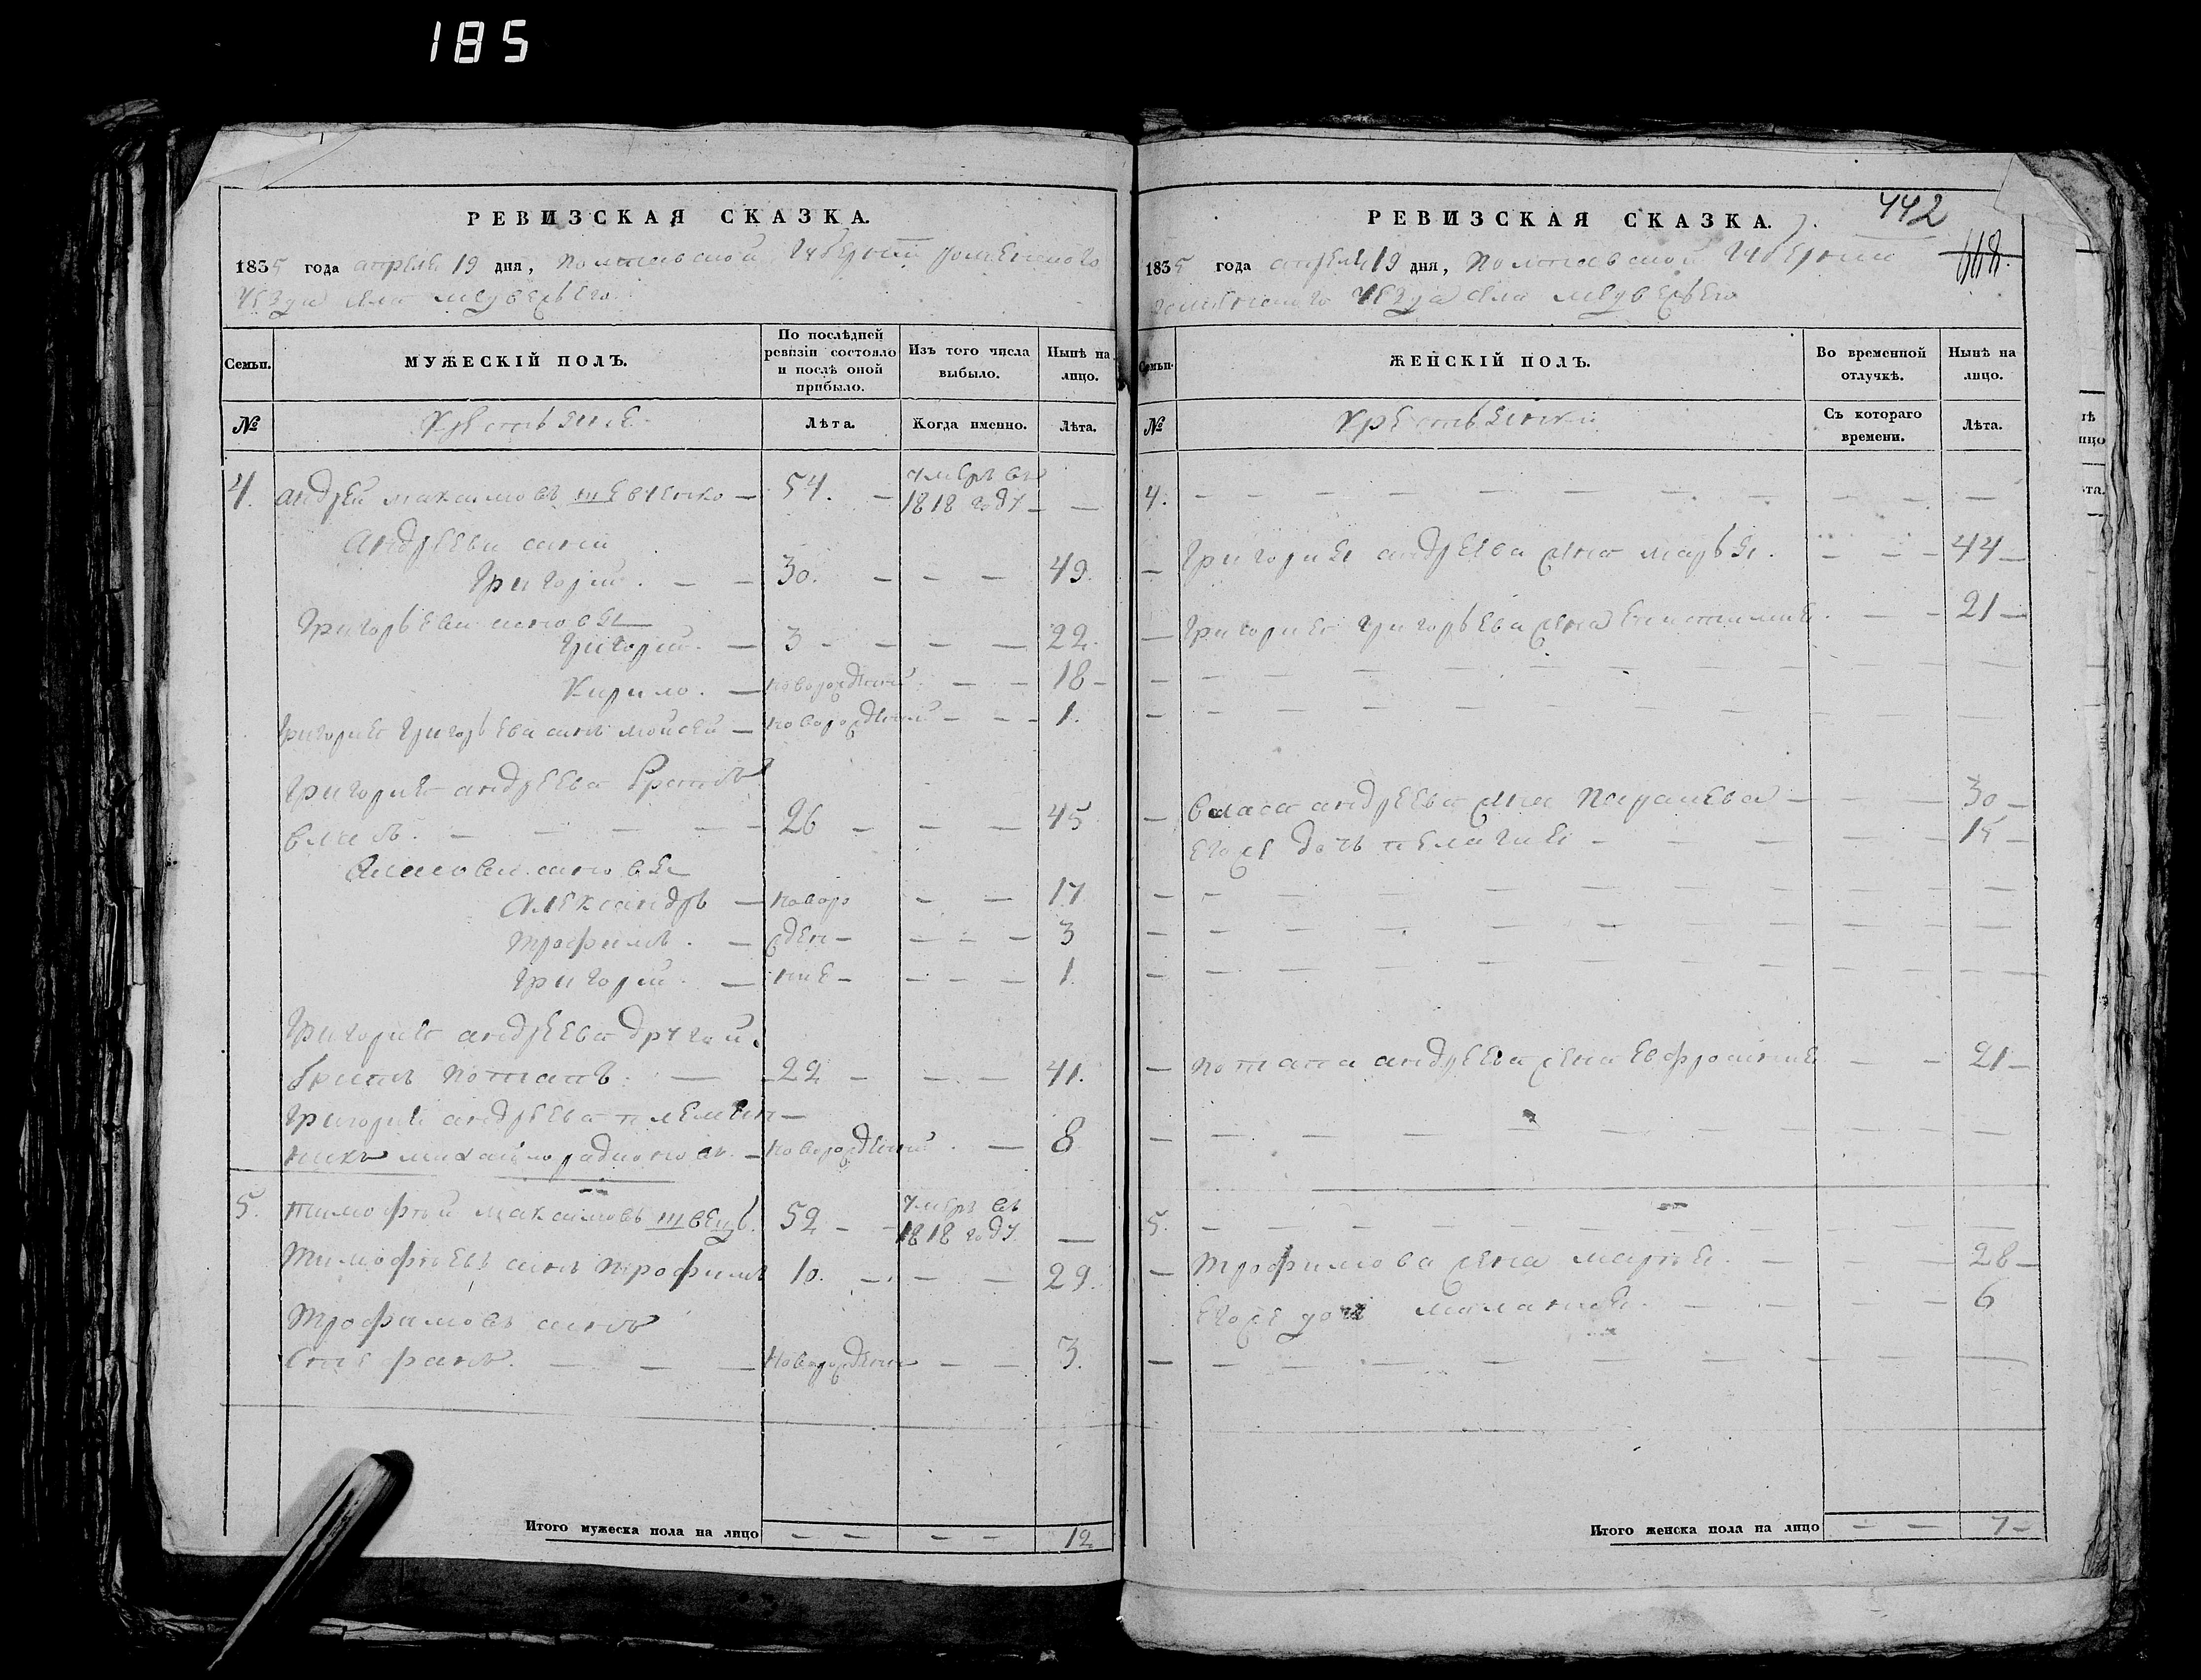 185
РЕВИЗСКАЯ СКАЗКА.
1835 года апреля 19 дня, Полтавской Губернии роменского
уезда села медвежьего
Семьи. МУЖЕСКІЙ ПОЛЪ. По послѣдней ревизіи состояло и послѣ оной прибыло. Изъ того числа выбыло. Нынѣ на лицо.
№ Крестьяне Лѣта. Когда именно. Лѣта.
4. андрей максимовъ шевченко — 54. — умеръ въ 1818 году — —
Андреевы сыны
Григорий. — — 30. — — — 49.
Григорьевы сыновья
Григорий. — 3 — — — — 22.
Кирило. — новорожденый — — 18 —
Григория Григорьева сынъ мойсей — новорожденый — — — 1.
Григория андреева братъ
власъ. — — — — — 26 — — — 45
Власовы сыновья
Александръ — новоро — — 17
трофимъ. — жден — — — — 3
григорий. — ние — — — — 1.
Григория андреева другой
братъ потапъ. — — 22 — — — 41.
Григория андреева племян—
никъ михайло радионовъ. — новорожденый. — 8
5. тимофей максимовъ швецъ. 52 — — умеръ въ 1818 году. —
Тимофеевъ сынъ трофимъ 10. — — — 29.
Трофимовъ сынъ
Стефанъ. — — — новорожденый — — 3.
Итого мужеска пола на лицо — — — — 12
РЕВИЗСКАЯ СКАЗКА. 442
1835 года апреля 19 дня, Полтавской Губернии
роменского уезда села медвежьего
Семьи. ЖЕНСКІЙ ПОЛЪ. Во временной отлучкѣ. Нынѣ на лицо.
№ Крестьянки Съ котораго времени. Лѣта.
4. — — — — — — — — — — —
— Григория андреева жена марья. — — — 44 —
— Григория григорьева жена — — 21 —
— власа андреева жена — — — 30 —
егоже дочь пелагия — — — — — 15 —
— потапа андреева жена евфросиния — — 21 —
5. — — — — — — — — — — —
— трофимова жена марья. — — — 28 —
егоже дочь малания. — — — — 6
Итого женска пола на лицо — — 7 —